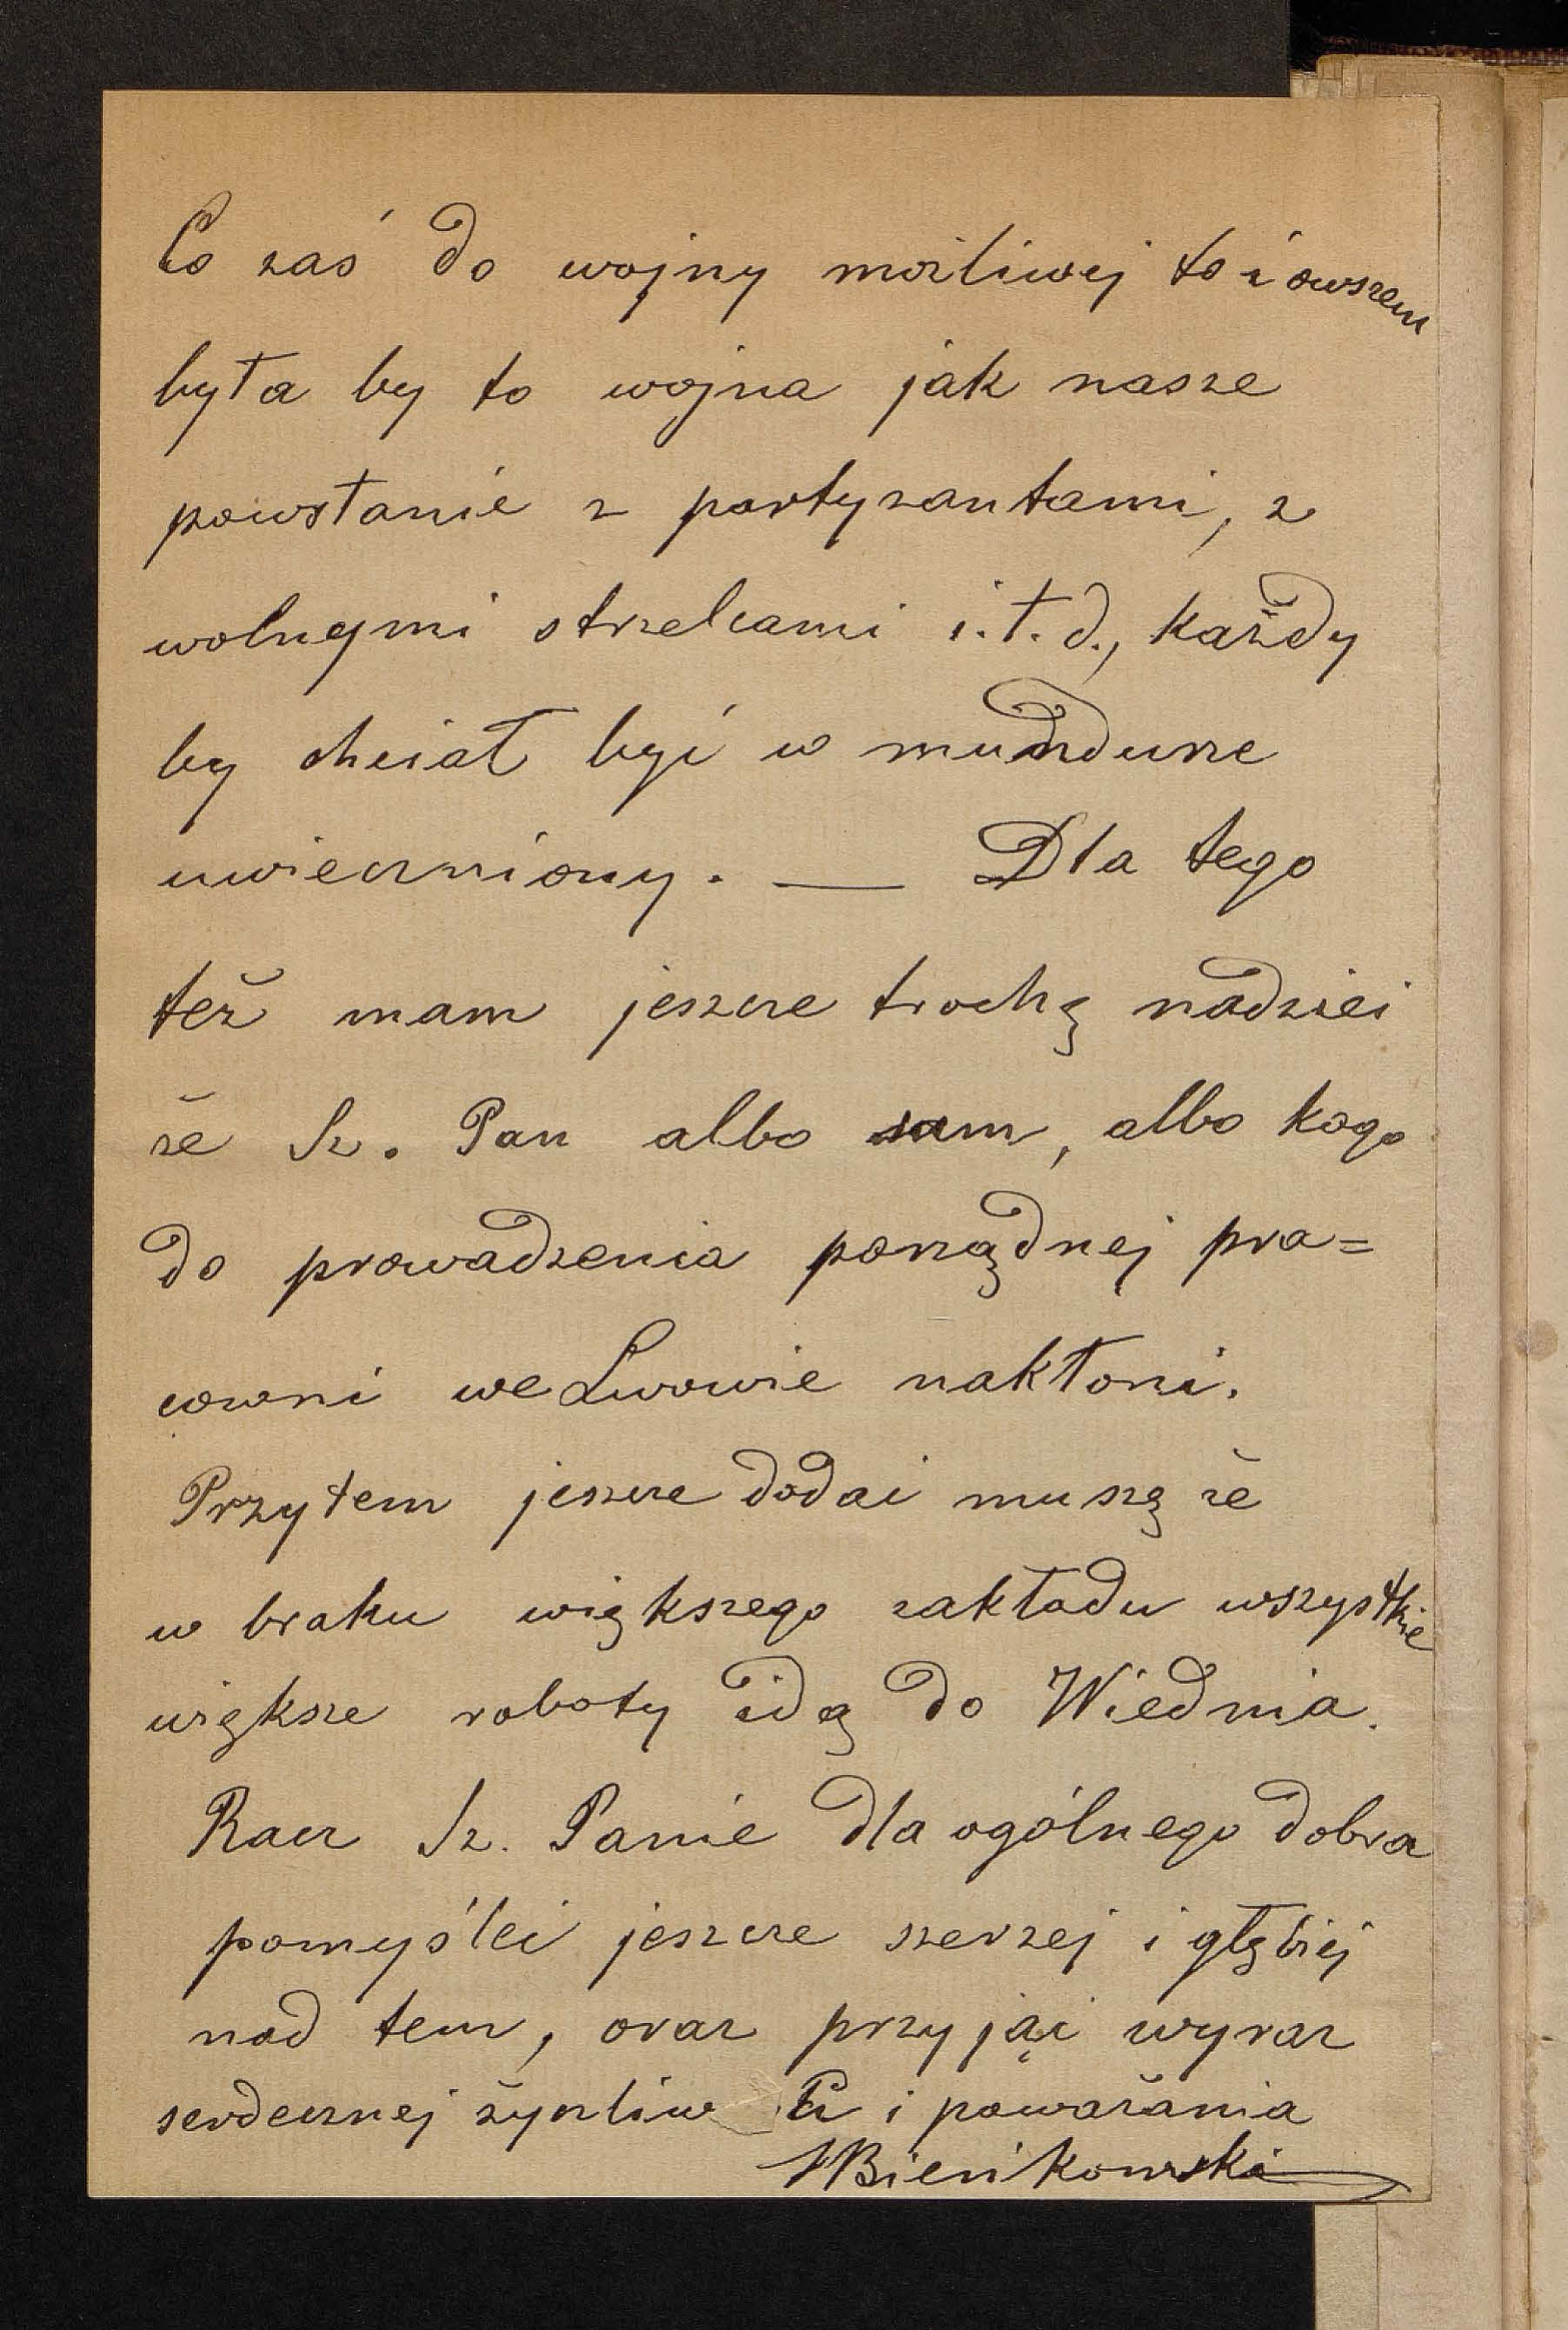 Co zaś do wojny możliwej to i owszem
była by to wojna jak nasze
powstanie z partyzantami, z
wolnymi strzelcami i.t.d., każdy
by chciał być w mundurze
uwieczniony. — Dla tego
też mam jeszcze trochę nadziei
że Sz. Pan albo sam, albo kogo
do prowadzenia porządnej pra=
cowni we Lwowie nakłoni.
Przytem jeszcze dodać muszę że
w braku większego zakładu wszystkie
większe roboty idą do Wiednia.
Racz Sz. Panie dla ogólnego dobra
pomyśleć jeszcze szerzej i głębiej
nad tem, oraz przyjąć wyraz
serdecznej życzliw ci i poważania
Bieńkowski